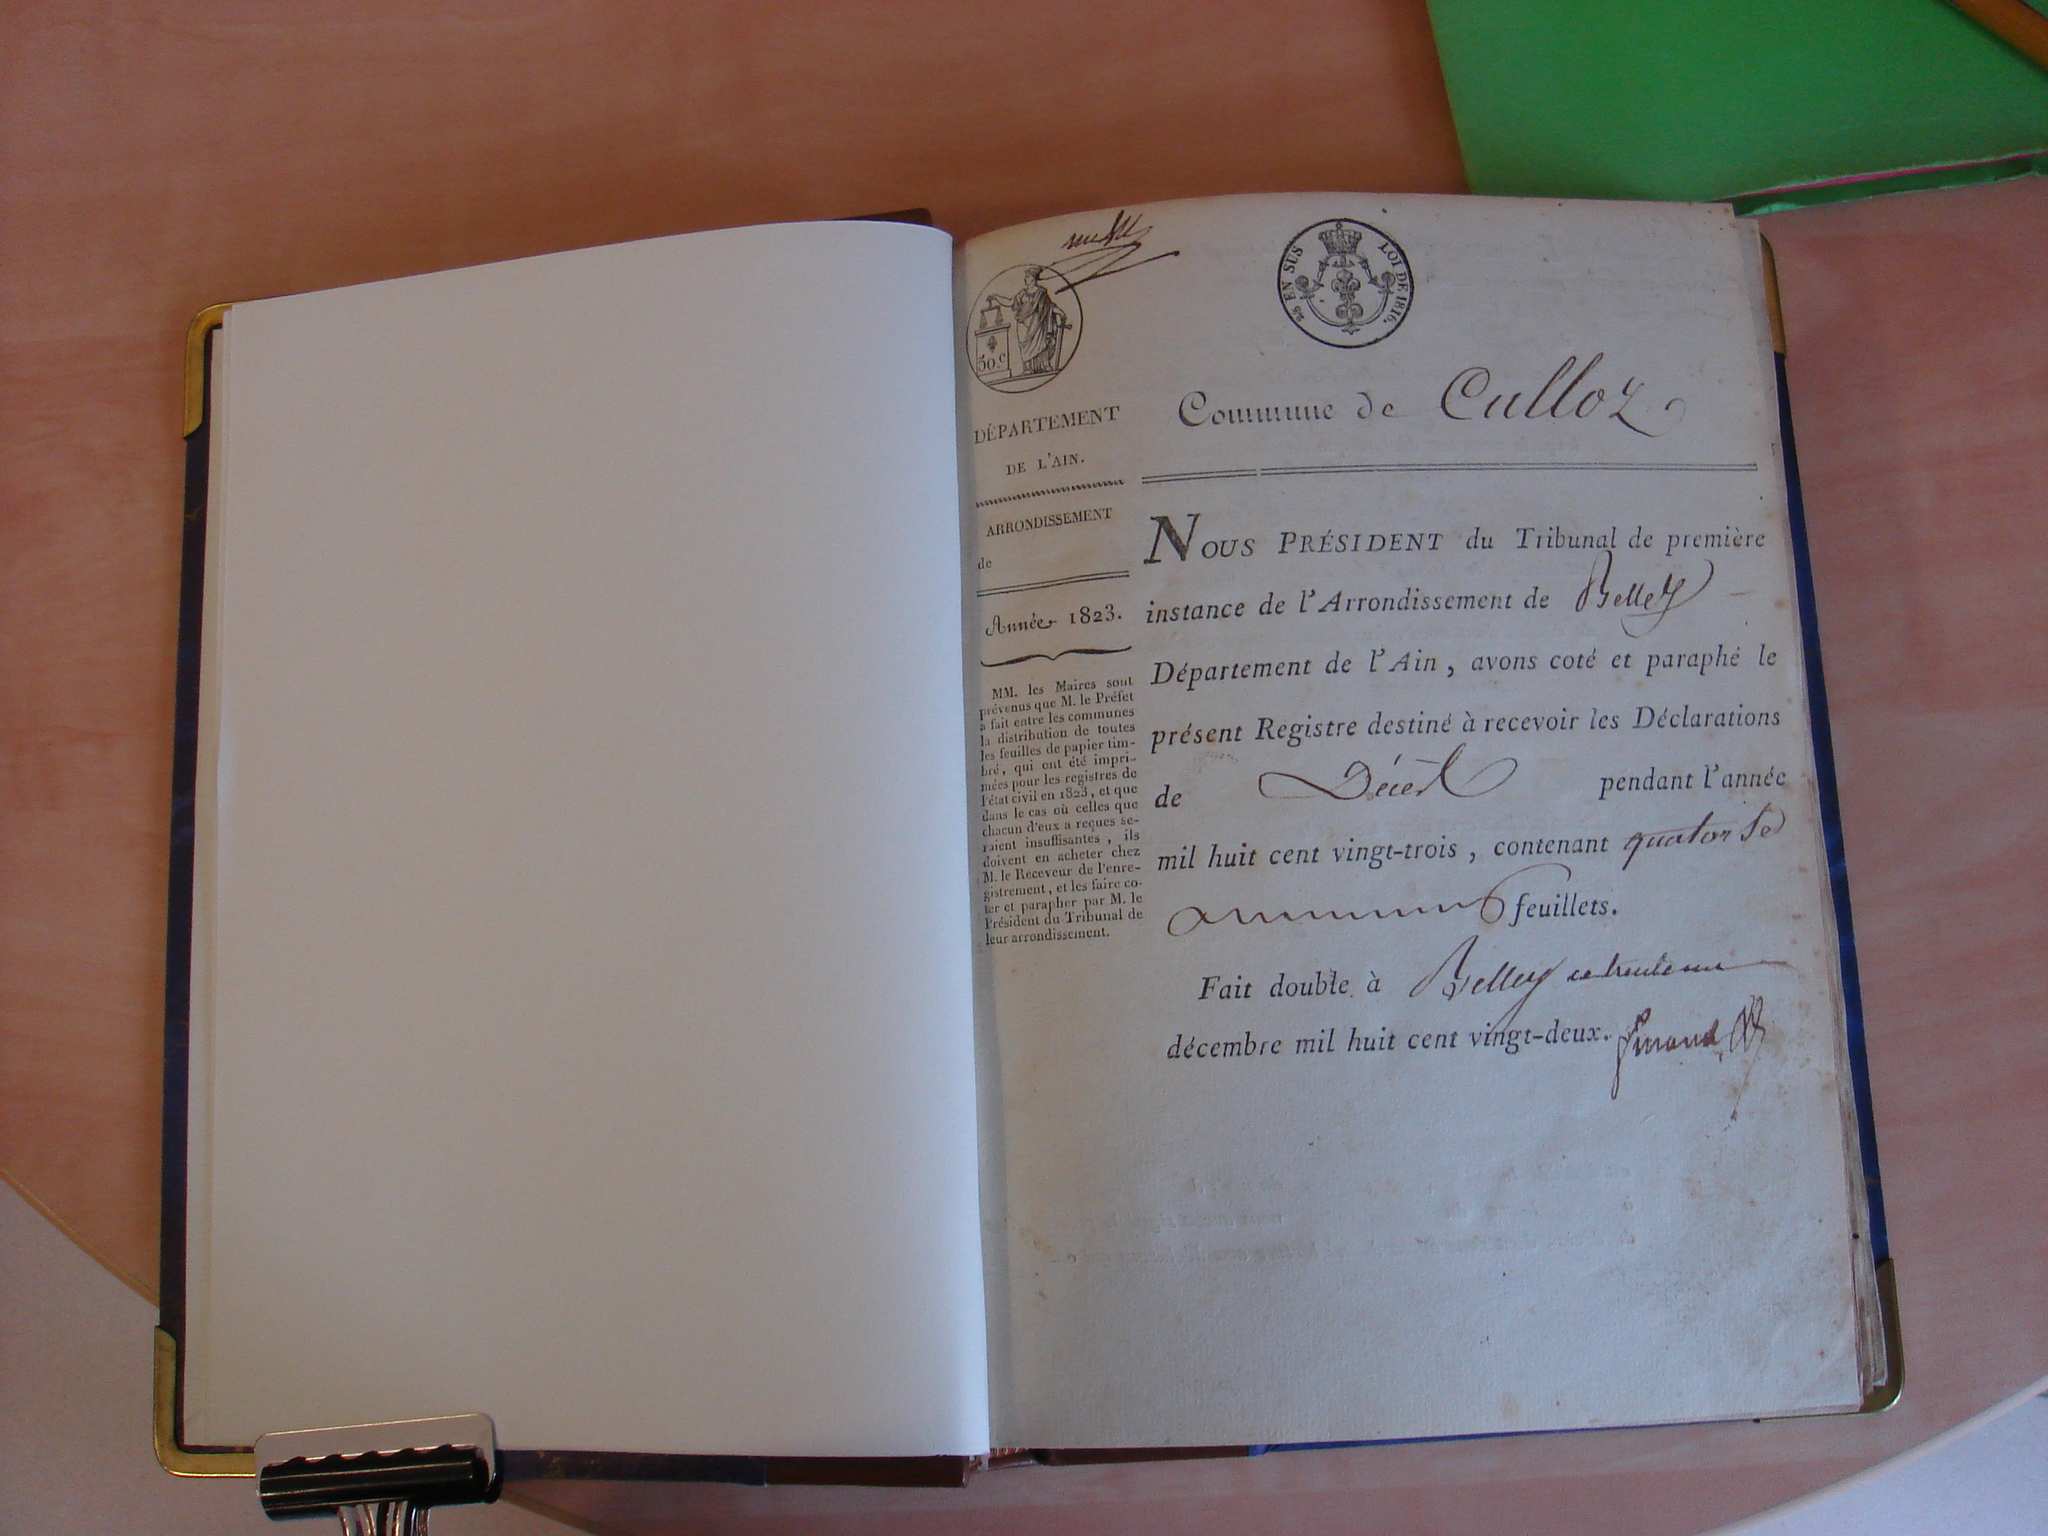 50.c
25 EN SUS LOI DE 1816.
DÉPARTEMENT
DE L'AIN.
ARRONDISSEMENT
de
Année 1823.
MM. les Maires sont
prévenus que M. le Préfet
a fait entre les communes
la distribution de toutes
les feuilles de papier tim-
bré, qui ont été impri-
mées pour les registres de
l'état civil en 1823, et que
dans le cas où celles que
chacun d'eux a reçues se-
raient insuffisantes, ils
doivent en acheter chez
M. le Receveur de l'enre-
gistrement, et les faire co-
ter et parapher par M. le
Président du Tribunal de
leur arrondissement.
Commune de Culloz
NOUS PRÉSIDENT du Tribunal de première
instance de l'Arrondissement de Belley
Département de l'Ain, avons coté et paraphé le
présent Registre destiné à recevoir les Déclarations
de Décès pendant l'année
mil huit cent vingt-trois, contenant quatorze
feuillets.
Fait double à Belley ce trente un
décembre mil huit cent vingt-deux.